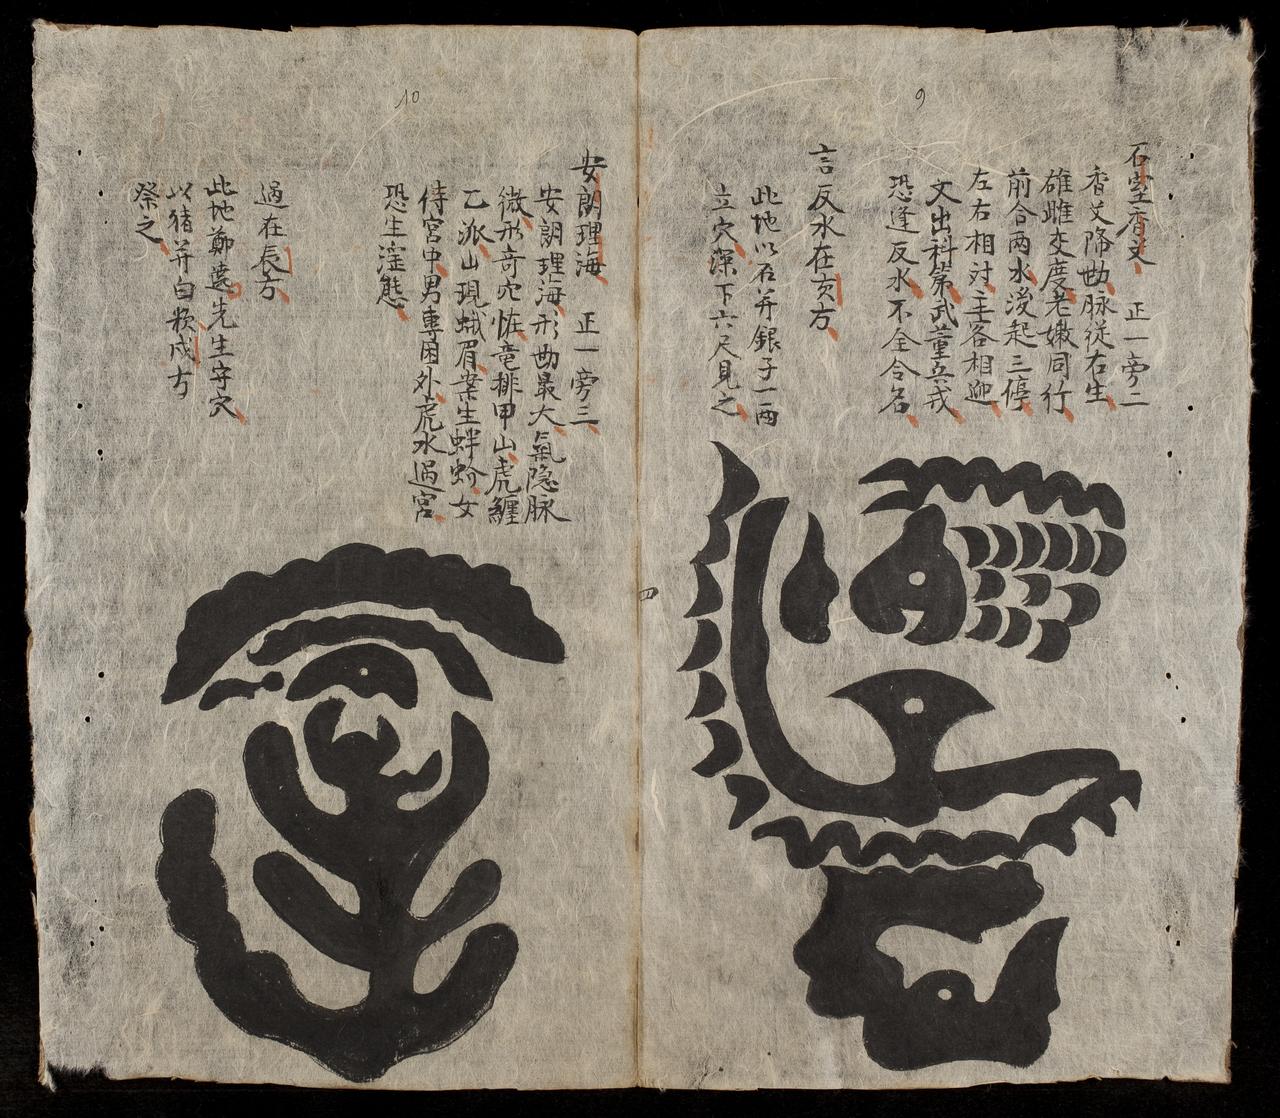 9
石室香艾　正一旁二
香艾降幼脉従右生
雄雌交度老嫩同行
前合两水後起三停
左右相対主各相迎
文出科第武董兵戎
恐逢反水不全合名
言反水在亥方
此地以石并銀子一两
立穴深下六尺見之
四
10
安朗理海　正一旁三
安朗理海形幼最大氣隐脉
微形奇穴恠竜排甲山虎纏
乙派山現蛾眉案生蚌蛤女
侍宮中男專困外虎水過宮
恐生淫態
過在辰方
此地鄭 先生守穴
以猪并白 戌方
祭之